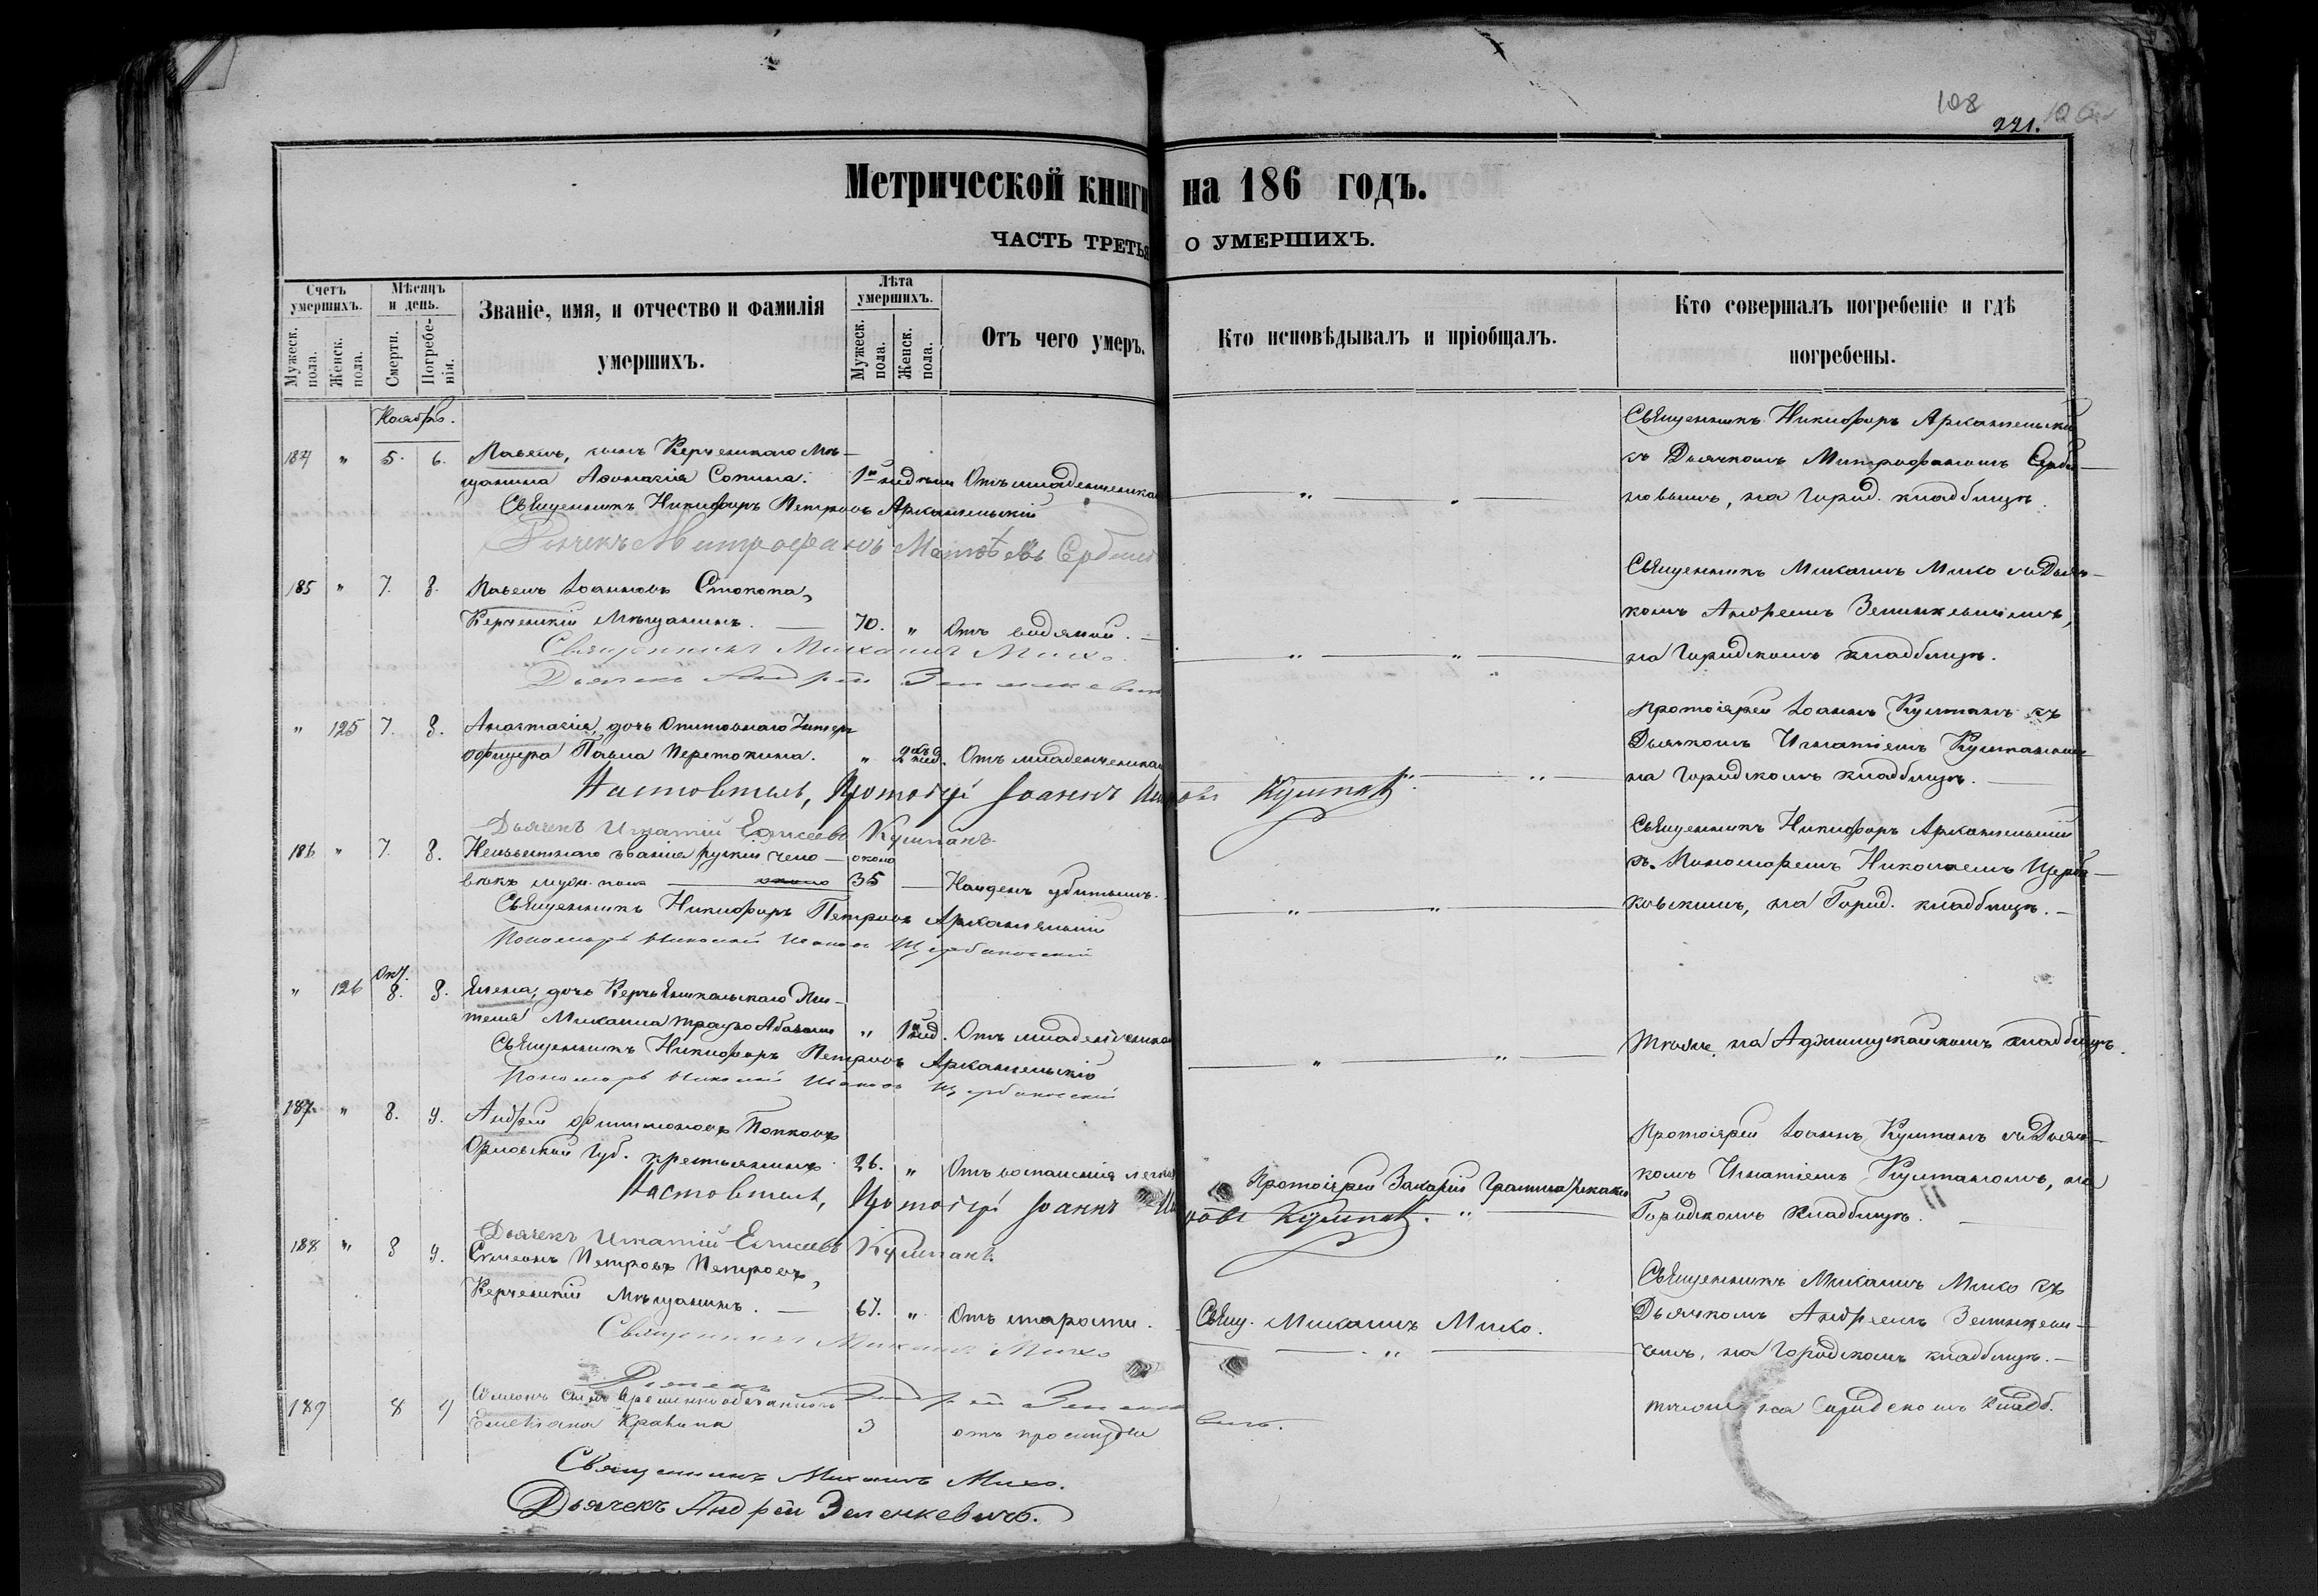 108
221.
Метрической книги на 186 годъ.
ЧАСТЬ ТРЕТЬЯ О УМЕРШИХЪ.
Счетъ умершихъ.
Мужеск. пола.
Женск. пола.
Мѣсяцъ и день.
Смерти.
Погребенія.
Званіе, имя, и отчество и фамилія умершихъ.
Лѣта умершихъ.
Мужеск. пола.
Женск. пола.
Отъ чего умеръ.
Кто исповѣдывалъ и пріобщалъ.
Кто совершалъ погребеніе и гдѣ погребены.
Ноябрь.
184 " 5. 6. Павелъ, сынъ Керченскаго Мѣ-
щанина Афанасія Сопина. 1 недѣли Отъ младенческой
Священникъ Никифоръ Петровъ Архангельскій
Дьячекъ Митрофанъ Матѳеевъ
Священникъ Никифоръ Архангельскій
съ Дьячкомъ Митрофаномъ
новымъ, на Город. кладбищѣ.
185 " 7. 8. Павелъ Іоанновъ Стокопа,
Керченскій Мѣщанинъ. 70. " Отъ водяной.
Священникъ Михаилъ Михо.
Дьячекъ Андрей Зеленкевичъ
Священникъ Михаилъ Михо съ Дьяч-
комъ Андреемъ Зеленкевичемъ,
на Городскомъ кладбищѣ.
" 125 7. 8. Анастасія, дочь Отставнаго Унтеръ
офицера Павла Перетокина. " 2 нед. Отъ младенческой
Настоятель, Протоіерей Іоаннъ Кушпанъ
Дьячекъ Игнатій Елисеевъ Кушпанъ.
Протоіерей Іоаннъ Кушпанъ съ
Дьячкомъ Игнатіемъ Кушпаномъ
на Городскомъ кладбищѣ.
186 " 7. 8. Неизвѣстнаго званія рускій чело-
вѣкъ муж. пола около 35 Найденъ убитымъ.
Священникъ Никифоръ Петровъ Архангельскій
Пономарь Николай Ивановъ Щербаковскій
Священникъ Никифоръ Архангельскій
съ Пономаремъ Николаемъ Щерба-
ковскимъ, на Город. кладбищѣ.
Окт.
" 126 8. 8. Елена, дочь Керчь Еникальскаго Жи-
теля Михаила " 1 нед. Отъ младенческой
Священникъ Никифоръ Петровъ Архангельскій
Пономарь Николай Ивановъ Щербаковскій
Тѣже, на Аджимушкайскомъ кладбищѣ.
187. " 8. 9. Андрей Филимоновъ Попковъ
Орловской Губ. крестьянинъ 26. " Отъ воспаленія легкихъ
Настоятель, Протоіерей Іоаннъ Кушпанъ.
Дьячекъ Игнатій Елисеевъ Кушпанъ.
Протоіерей Захарій
Протоіерей Іоаннъ Кушпанъ съ Дьяч-
комъ Игнатіемъ Кушпаномъ, на
Городскомъ Кладбищѣ.
188 " 8 9. Симеонъ Петровъ Петровъ,
Керченскій Мѣщанинъ. 67. " Отъ старости.
Священникъ Михаилъ Михо
Дьячекъ Андрей Зеленкевичъ.
Свящ. Михаилъ Михо.
Священникъ Михаилъ Михо съ
Дьячкомъ Андреемъ Зеленкеви-
чемъ, на Городскомъ кладбищѣ.
189 8 9 Симеонъ сынъ временнообязаннаго
Емельяна Кравина 3 отъ простуды
Тѣже на Городскомъ Кладб.
Священникъ Михаилъ Михо.
Дьячекъ Андрей Зеленкевичъ.